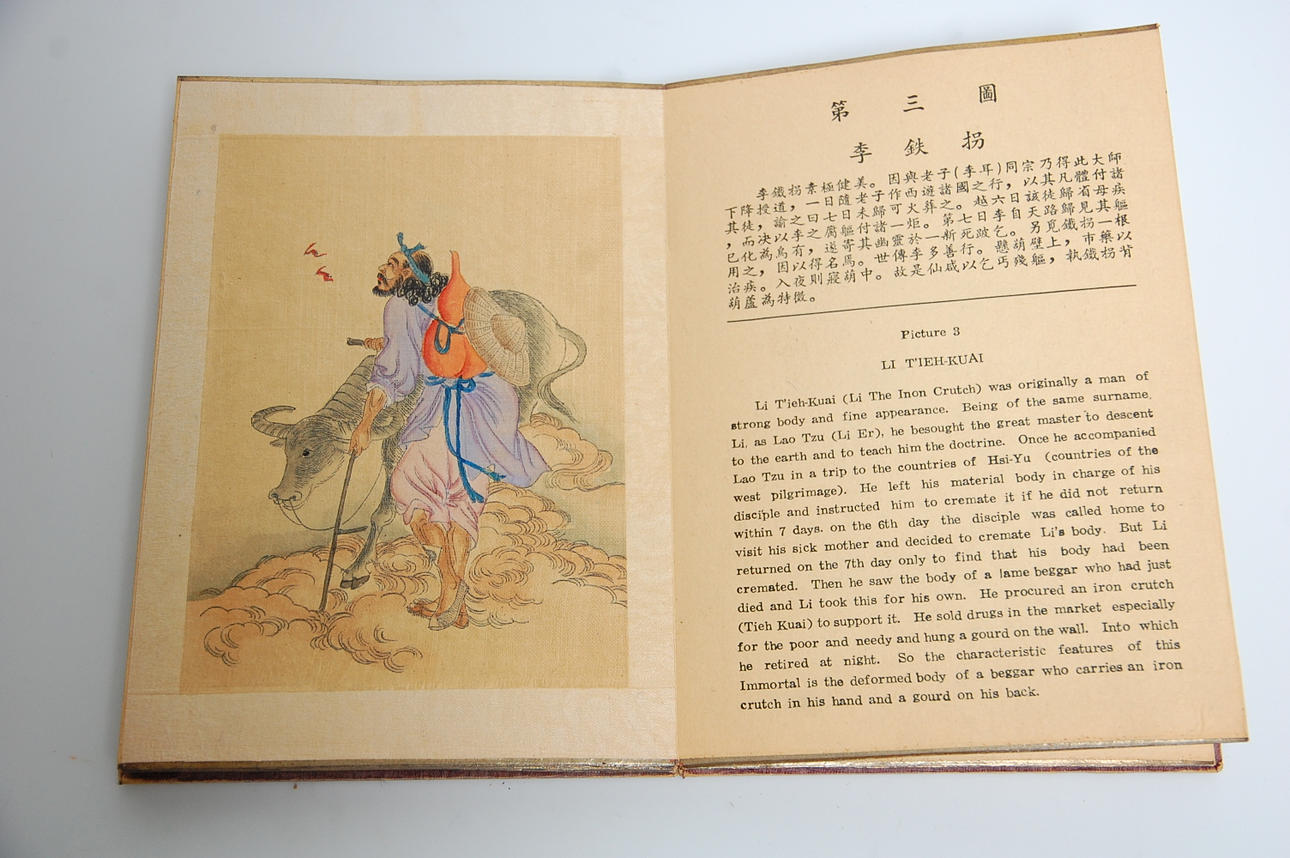 第三圖
李鉄拐
李鐵拐素極健美。因與老子(李耳)同宗乃得此大師
下降授道,一日隨老子作西遊諸國之行,以其凡體付諸
其徒,諭之曰七日未歸可火葬之。越六日該徒歸省母疾
,而决以李之腐軀付諸一炬。第七日李自天路歸見其軀
已化為烏有,遂寄其幽靈於一新死跛乞。另覓鐵拐一根
用之,因以得名焉。世傳李多善行。懸葫壁上,市藥以
治疾。入夜則寢葫中。故是仙咸以乞丐殘軀,執鐵拐背
葫蘆為特徵。
Picture 3
LI T'IEH-KUAI
Li T'ieh-Kuai (Li The Inon Crutch) was originally a man of
strong body and fine appearance. Being of the same surname,
Li, as Lao Tzu (Li Er), he besought the great master to descent
to the earth and to teach him the doctrine. Once he accompanied
Lao Tzu in a trip to the countries of Hsi-Yu (countries of the
west pilgrimage). He left his material body in charge of his
disciple and instructed him to cremate it if he did not return
within 7 days. on the 6th day the disciple was called home to
visit his sick mother and decided to cremate Li's body. But Li
returned on the 7th day only to find that his body had been
cremated. Then he saw the body of a lame beggar who had just
died and Li took this for his own. He procured an iron crutch
(Tieh Kuai) to support it. He sold drugs in the market especially
for the poor and needy and hung a gourd on the wall. Into which
he retired at night. So the characteristic features of this
Immortal is the deformed body of a beggar who carries an iron
crutch in his hand and a gourd on his back.